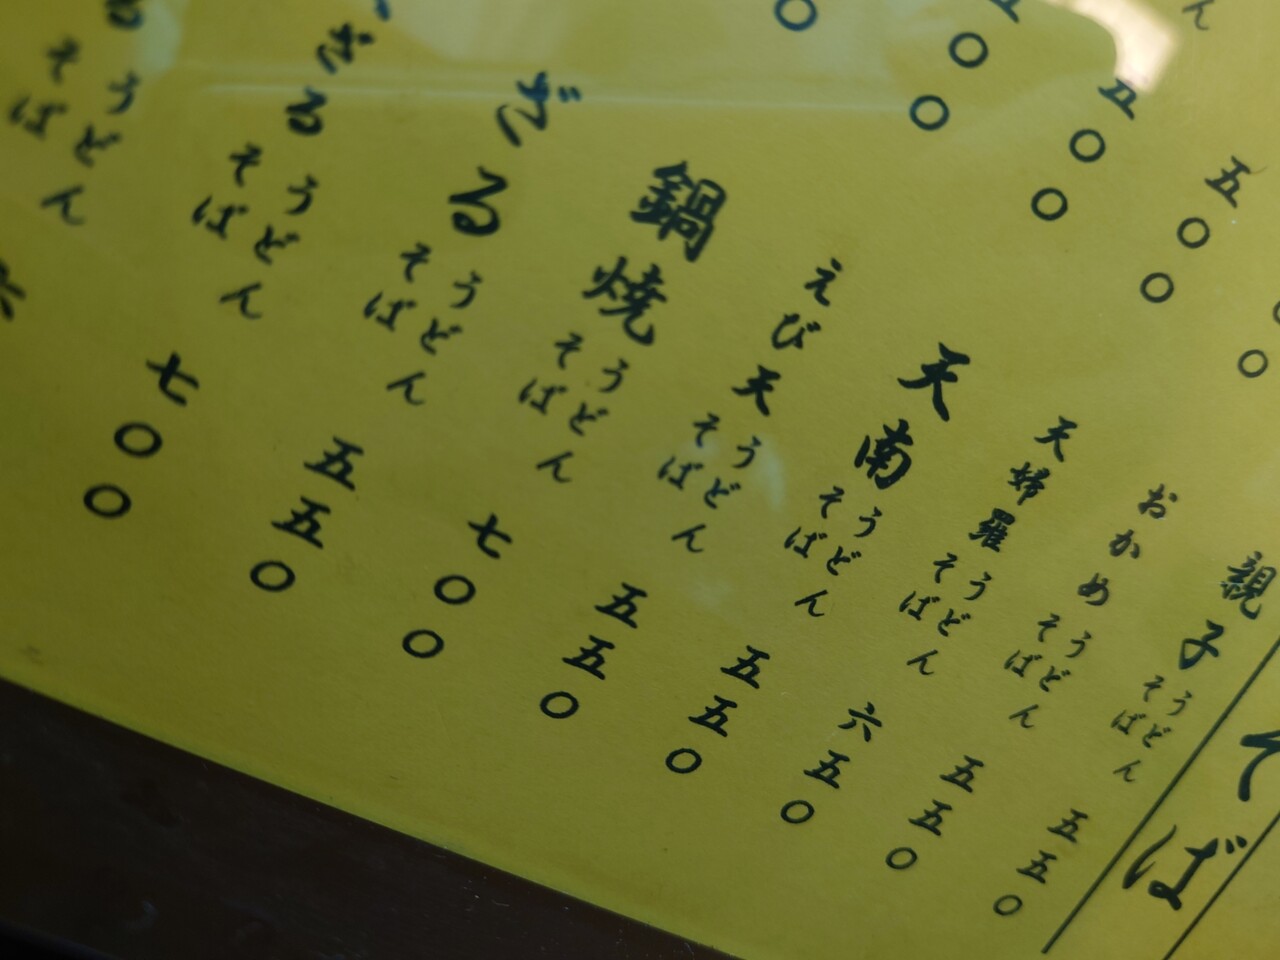 そば
親子 そば うどん 五五〇
おかめ そば うどん 五五〇
天婦羅 そば うどん 六五〇
天南 そば うどん 五五〇
えび天 そば うどん 五五〇
鍋焼 そば うどん 七〇〇
ざる そば うどん 五五〇
ざる そば うどん 七〇〇
そば うどん 六
〇
五〇〇
五〇〇
〇〇
〇